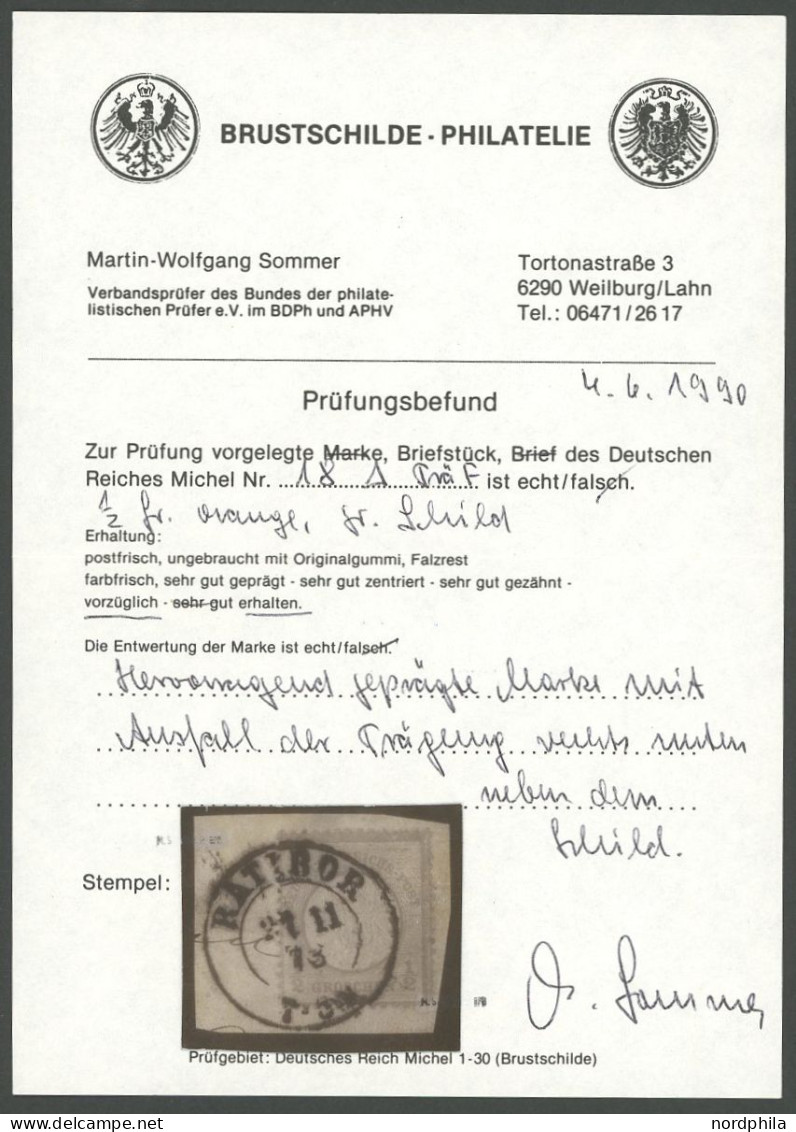 BRUSTSCHILDE - PHILATELIE
Martin-Wolfgang Sommer
Verbandsprüfer des Bundes der philate-
listischen Prüfer e.V. im BDPh und APHV
Tortonastraße 3
6290 Weilburg/Lahn
Tel.: 06471/26 17
4. 6. 1990
Prüfungsbefund
Zur Prüfung vorgelegte Marke, Briefstück, Brief des Deutschen
Reiches Michel Nr. 18 PräF ist echt/falsch.
½ Gr. orange, gr. Schild
Erhaltung:
postfrisch, ungebraucht mit Originalgummi, Falzrest
farbfrisch, sehr gut geprägt - sehr gut zentriert - sehr gut gezähnt -
vorzüglich - sehr gut erhalten.
Die Entwertung der Marke ist echt/falsch.
Hervorragend geprägte Marke mit
Ausfall der Prägung rechts unten
neben dem
Schild.
Stempel:
RATIBOR
11
73
GROSCHEN
Sommer
Prüfgebiet: Deutsches Reich Michel 1-30 (Brustschilde)
nordphila